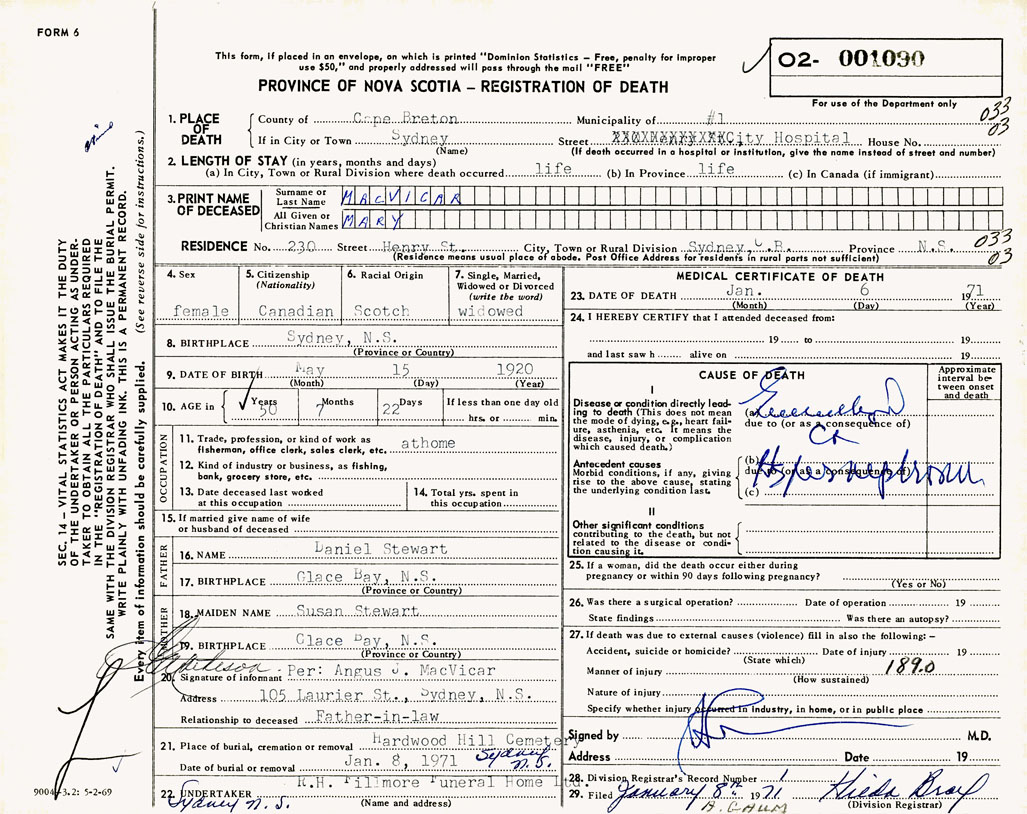 FORM 6
This form, if placed in an envelope, on which is printed "Dominion Statistics – Free, penalty for improper
use $50," and properly addressed will pass through the mail "FREE"
PROVINCE OF NOVA SCOTIA – REGISTRATION OF DEATH
O2- 001090
For use of the Department only
033
03
1. PLACE OF DEATH
County of Cape Breton Municipality of #1
If in City or Town Sydney Street City Hospital House No.
(Name) (If death occurred in a hospital or institution, give the name instead of street and number)
2. LENGTH OF STAY (in years, months and days)
(a) In City, Town or Rural Division where death occurred life (b) In Province life (c) In Canada (if immigrant)
3. PRINT NAME OF DECEASED
Surname or Last Name MACVICAR
All Given or Christian Names MARY
RESIDENCE No. 230 Street Henry St. City, Town or Rural Division Sydney, C.B. Province N.S.
(Residence means usual place of abode. Post Office Address for residents in rural parts not sufficient)
033
03
4. Sex
female
5. Citizenship
(Nationality)
Canadian
6. Racial Origin
Scotch
7. Single, Married,
Widowed or Divorced
(write the word)
widowed
8. BIRTHPLACE Sydney, N.S.
(Province or Country)
9. DATE OF BIRTH May 15 1920
(Month) (Day) (Year)
10. AGE in Years Months Days If less than one day old
50 7 22 hrs. or min.
OCCUPATION
11. Trade, profession, or kind of work as
fisherman, office clerk, sales clerk, etc. athome
12. Kind of industry or business, as fishing,
bank, grocery store, etc.
13. Date deceased last worked
at this occupation
14. Total yrs. spent in
this occupation
15. If married give name of wife
or husband of deceased
FATHER
16. NAME Daniel Stewart
17. BIRTHPLACE Glace Bay, N.S.
(Province or Country)
MOTHER
18. MAIDEN NAME Susan Stewart
19. BIRTHPLACE Glace Bay, N.S.
(Province or Country)
20. Signature of informant Per: Angus J. MacVicar
Address 105 Laurier St., Sydney, N.S.
Relationship to deceased Father-in-law
21. Place of burial, cremation or removal Hardwood Hill Cemetery
Sydney N.S.
Date of burial or removal Jan. 8, 1971
22. UNDERTAKER R.H. Fillmore Funeral Home Ltd.
Sydney N.S. (Name and address)
MEDICAL CERTIFICATE OF DEATH
23. DATE OF DEATH Jan. 6 1971
(Month) (Day) (Year)
24. I HEREBY CERTIFY that I attended deceased from:
19 to 19
and last saw h alive on 19
CAUSE OF DEATH
Approximate interval between onset and death
I
Disease or condition directly leading to death (This does not mean the mode of dying, e.g., heart failure, asthenia, etc. It means the disease, injury, or complication which caused death.)
(a)
due to (or as a consequence of)
CA
Antecedent causes
Morbid conditions, if any, giving rise to the above cause, stating the underlying condition last.
(b)
due to (or as a consequence of)
Hypernephroma
(c)
II
Other significant conditions
contributing to the death, but not related to the disease or condition causing it.
25. If a woman, did the death occur either during
pregnancy or within 90 days following pregnancy?
(Yes or No)
26. Was there a surgical operation? Date of operation 19
State findings Was there an autopsy?
27. If death was due to external causes (violence) fill in also the following: –
Accident, suicide or homicide? Date of injury 19
(State which)
Manner of injury 1890
(How sustained)
Nature of injury
Specify whether injury occurred in industry, in home, or in public place
Signed by M.D.
Address Date 19
28. Division Registrar's Record Number 1
29. Filed January 8th 1971 Hilda Bray
A. CAUM (Division Registrar)
SEC. 14 – VITAL STATISTICS ACT MAKES IT THE DUTY
OF THE UNDERTAKER OR PERSON ACTING AS UNDER-
TAKER TO OBTAIN ALL THE PARTICULARS REQUIRED
IN THE "REGISTRATION OF DEATH" AND TO FILE THE
SAME WITH THE DIVISION REGISTRAR WHO SHALL ISSUE THE BURIAL PERMIT.
WRITE PLAINLY WITH UNFADING INK. THIS IS A PERMANENT RECORD.
Every item of information should be carefully supplied. (See reverse side for instructions.)
9004-3.2: 5-2-69